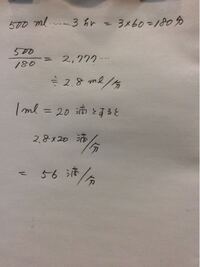 500 ml … 3 hr = 3×60 = 180 分
500/180 = 2,777…
≒ 2.8 ml/分
1ml = 20 滴とすると
2.8×20 滴/分
= 56 滴/分